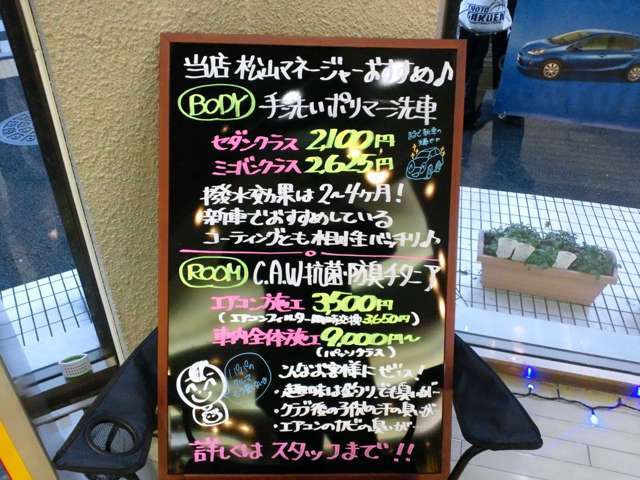 当店 松山マネージャーおすすめ♪
BODY 手洗いポリマー洗車
セダンクラス 2,100円
ミニバンクラス 2,625円
撥水効果は2〜4ヶ月!
新車でおすすめしている
コーティングとも相性バッチリ♪
ROOM C.A.W抗菌・防臭チタニア
エアコン施工 3,500円
(エアコンフィルター同時交換 3,650円)
車内全体施工 9,000円〜
(パッソクラス)
こんなお客様にぜひ!
・趣味は釣りで臭いが…
・クラブ後の子供の汗の臭いが
・エアコンのカビの臭いが…
詳しくは スタッフまで!!